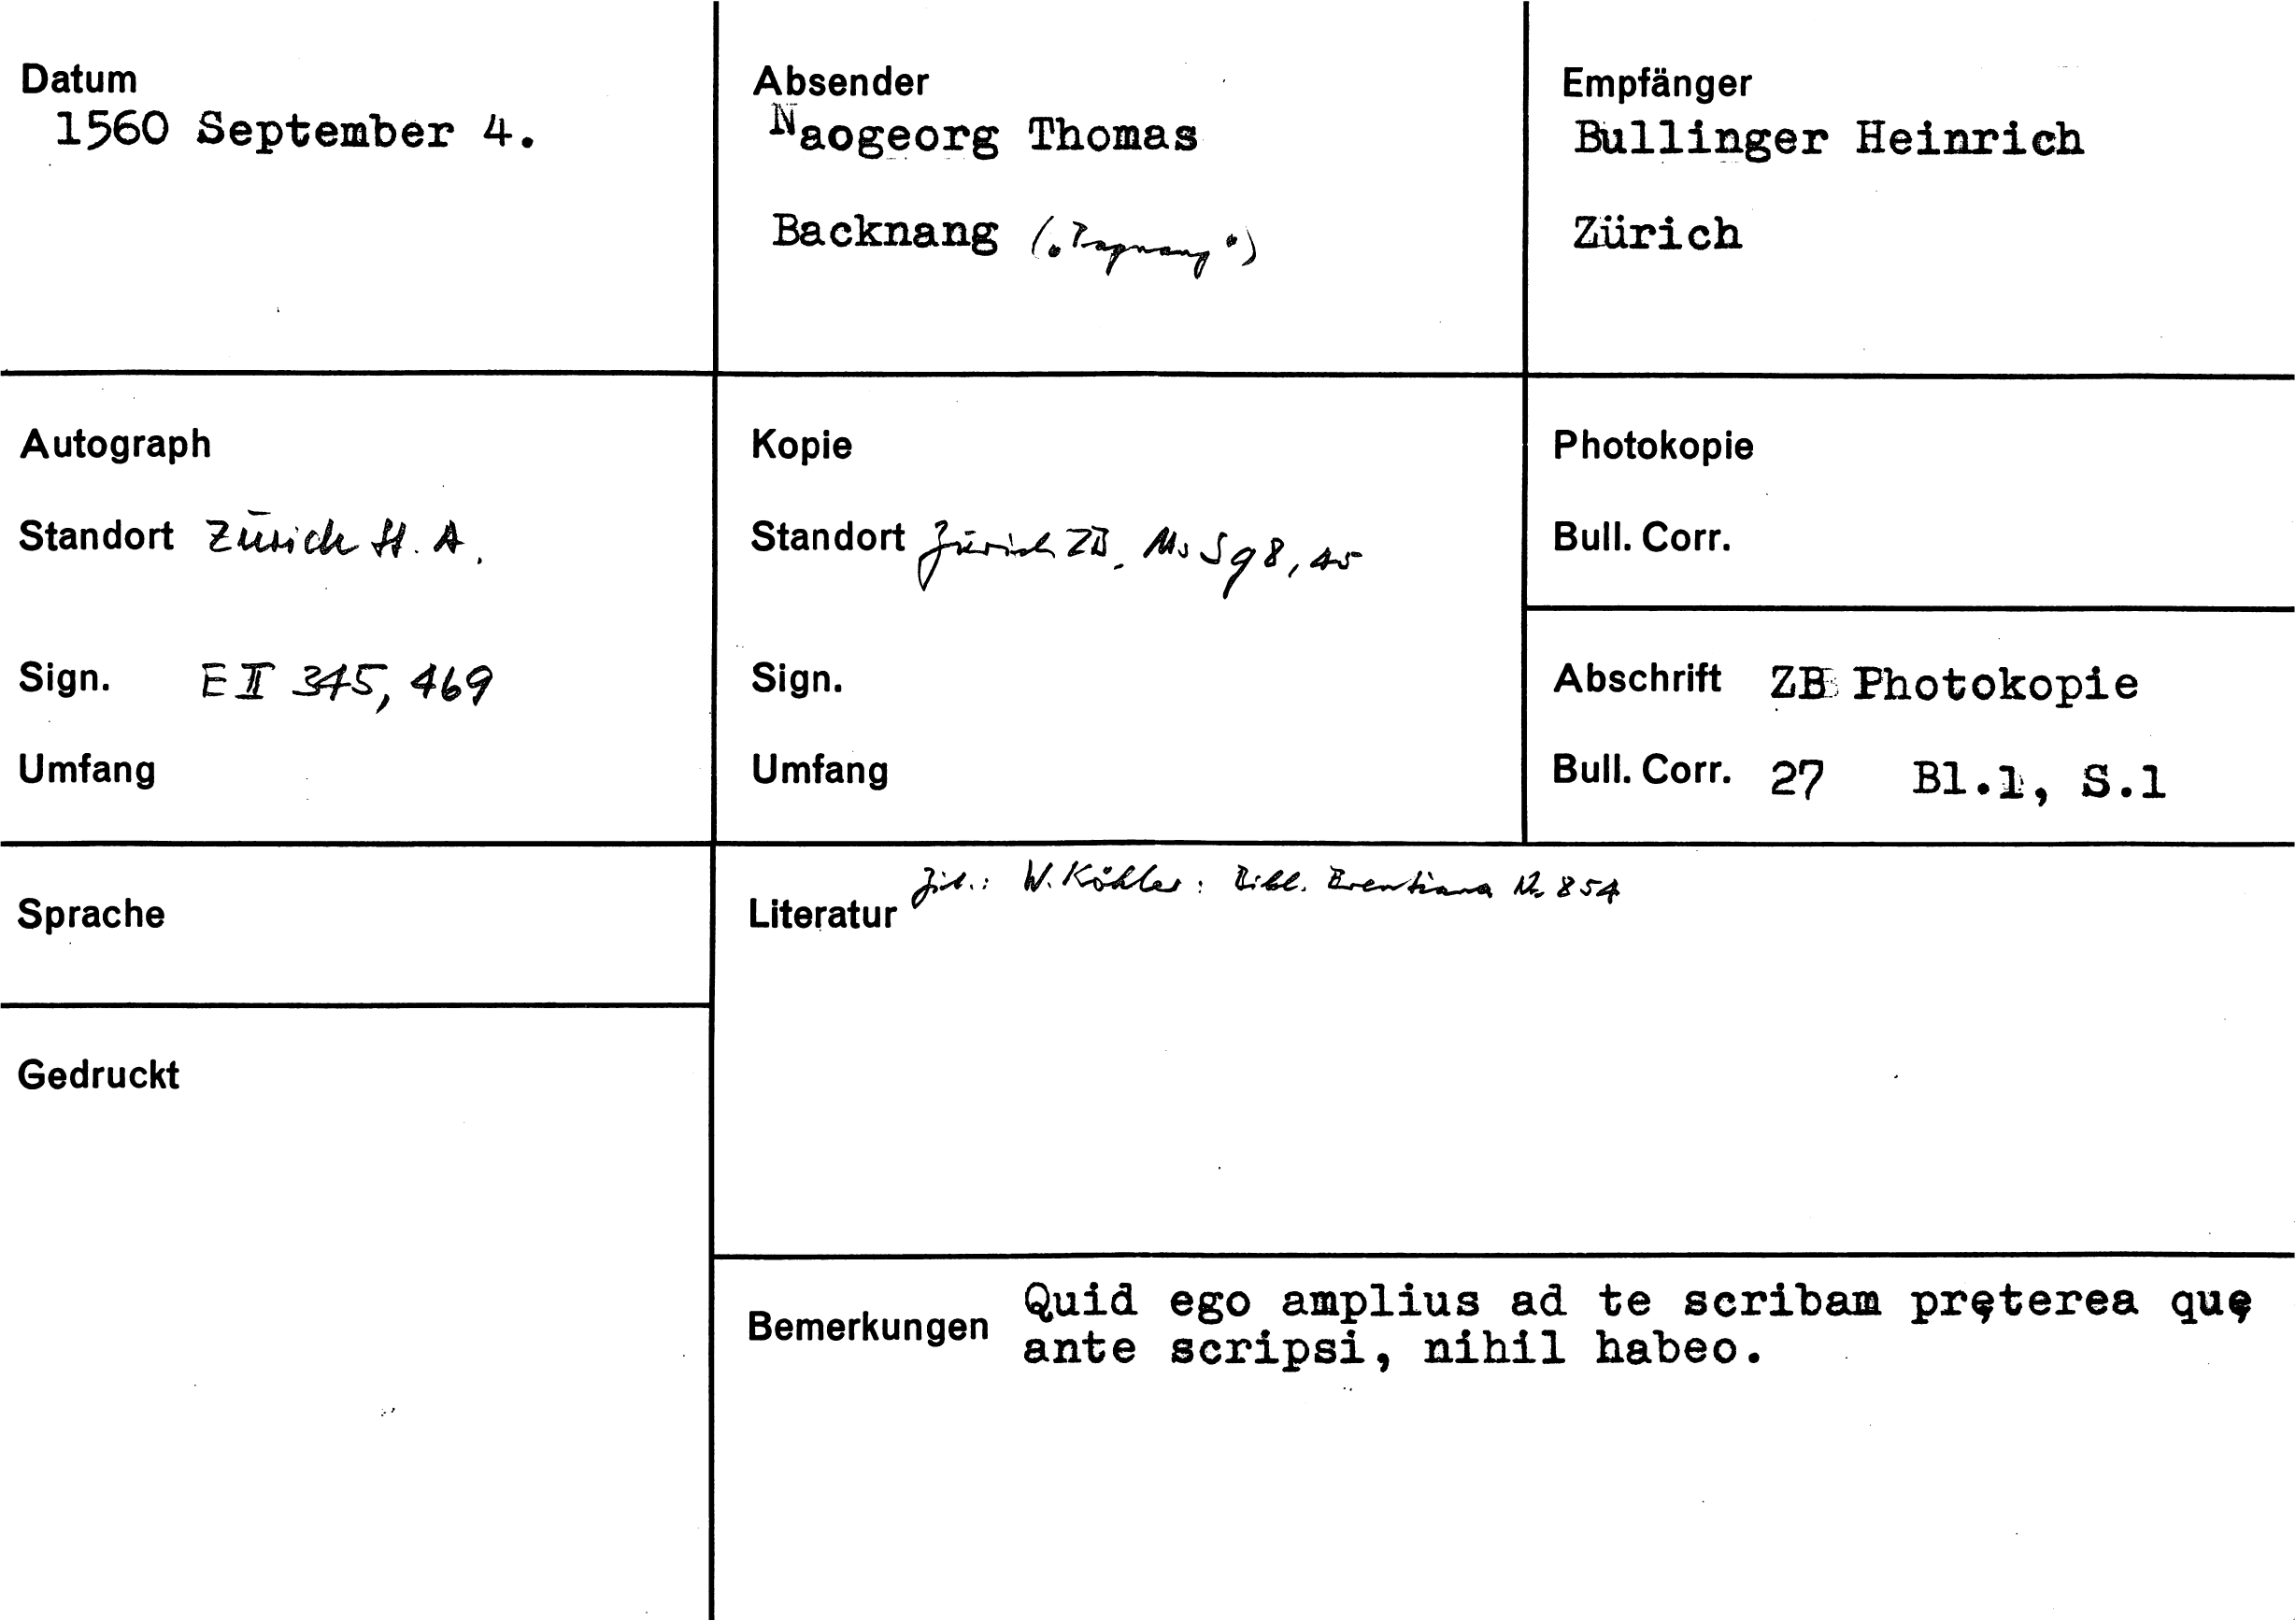 Datum
1560 September 4.
Absender
Naogeorg Thomas
Backnang („Pagnang“)
Empfänger
Bullinger Heinrich
Zürich
Autograph
Standort Zürich St. A.
Sign. E II 345, 469
Umfang
Kopie
Standort Zürich ZB. Ms S 98, 45
Sign.
Umfang
Photokopie
Bull. Corr.
Abschrift ZB Photokopie
Bull. Corr. 27 Bl.1, S.1
Sprache
Gedruckt
Literatur Zit.: W. Köhler: Bibl. Brentiana Nr. 854
Bemerkungen Quid ego amplius ad te scribam pręterea quę
ante scripsi, nihil habeo.